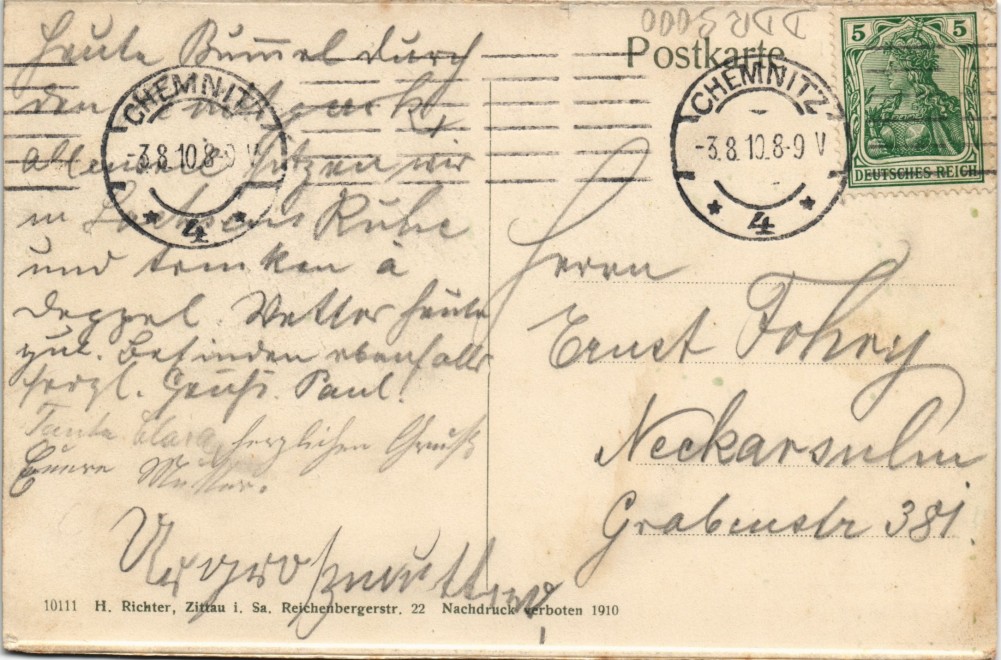 Heute Bummel durch
den
sitzen wir
in Ruhe
und trinken à
Wetter heute
gut. Befinden ebenfalls
herzl. Paul.
Tante Clara, herzlichen Gruß
Euere Mutter.
Urgroßmutter
Postkarte
DDR 3000
5 5
DEUTSCHES REICH
CHEMNITZ
-3.8.10.8-9 V
* 4 *
CHEMNITZ
-3.8.10.8-9 V
* 4 *
Herrn
Ernst
Neckarsulm
Grabenstr 381.
10111 H. Richter, Zittau i. Sa. Reichenbergerstr. 22 Nachdruck verboten 1910